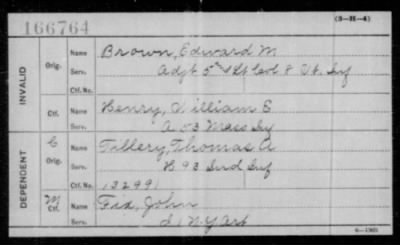 166764
(3—H—4)
INVALID
Orig. Name Brown, Edward M
Serv. Adjt 5th Lt Col 8 Vt. Inf
Ctf. No.
Ctf. Name Henry, William E
Serv. A 53 Mass Inf
DEPENDENT
C Orig. Name Tillery, Thomas A
Serv. H 93 Ind Inf
Ctf. No. 132991
M Ctf. Name Fix, John
1 N.Y. Art
6—1903